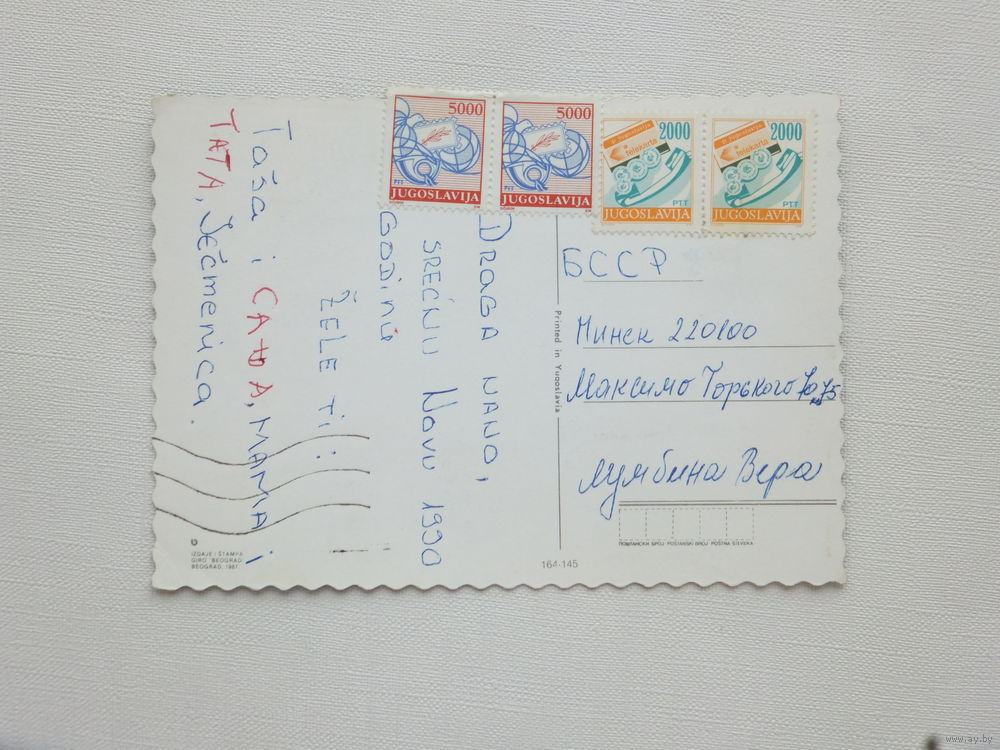 5000
PTT
JUGOSLAVIJA
5000
PTT
JUGOSLAVIJA
2000
telekarta
PTT
JUGOSLAVIJA
2000
telekarta
PTT
JUGOSLAVIJA
DRAGA NANO,
SREĆNU NOVU 1990
GODINU
ŽELE TI:
Taša i САЊА, MAMA i
TATA, JEČMENICA.
Printed in Yugoslavia
БССР
Минск 220100
Максимо Горького
Лумбина Вера
ПОШТАНСКИ БРОЈ POŠTANSKI BROJ POŠTNA ŠTEVILKA
IZDAJE I ŠTAMPA
GIRO "BEOGRAD"
BEOGRAD, 1987
164-145
www.ay.by